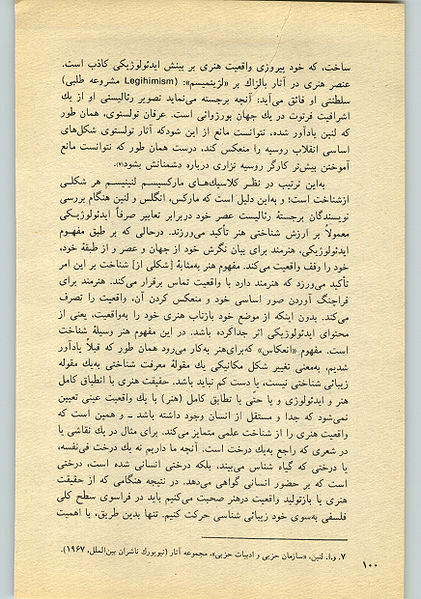 ساخت، که خود پیروزی واقعیت هنری بر بینش ایدئولوژیکی کاذب است.
عنصر هنری در آثار بالزاک بر «لژیتمیسم»: (Legihimism مشروعه طلبی)
سلطنتی او فائق می‌آید: آنچه برجسته می‌نماید تصویر رئالیستی او از یك
اشرافیت فرتوت در یك جهان بورژوائی است. عرفان تولستوی، همان طور
که لنین یادآور شده، نتوانست مانع از این شودکه آثار تولستوی شکل‌های
اساسی انقلاب روسیه را منعکس کند، درست همان طور که نتوانست مانع
آموختن بیش‌تر کارگر روسیه تزاری درباره دشمنانش بشود(۷).
به‌این ترتیب در نظر کلاسیك‌های مارکسیسم لنینیسم هر شکلی
ازشناخت است؛ و به‌این دلیل است که مارکس، انگلس و لنین هنگام بررسی
نویسندگان برجستهٔ رئالیست عصر خود دربرابر تعابیر صرفاً ایدئولوژیکی
معمولاً بر ارزش شناختی هنر تأکید می‌ورزند. درحالی که بر طبق مفهوم
ایدئولوژیکی، هنرمند برای بیان نگرش خود از جهان و عصر و از طبقهٔ خود،
خود را وقف واقعیت می‌کند. مفهوم هنر به‌مثابهٔ [شکلی از] شناخت بر این امر
تأکید می‌ورزد که هنرمند دارد با واقعیت تماس برقرار می‌کند. هنرمند برای
فراچنگ آوردن صور اساسی خود و منعکس کردن آن، واقعیت را تصرف
می‌کند. بدون اینکه از موضع خود بازتاب هنری خود را به‌واقعیت، یعنی از
محتوای ایدئولوژیکی اثر جداکرده باشد. در این مفهوم هنر وسیلهٔ شناخت
است. مفهوم «انعکاس» که‌برای‌هنر به‌کار می‌رود همان طور که قبلاً یادآور
شدیم، به‌معنی تغییر شکل مکانیکی یك مقولهٔ معرفت شناختی به‌یك مقوله
زیبائی شناختی نیست، یا دست کم نباید باشد. حقیقت هنری با انطباق کامل
هنر و ایدئولوژی و یا حتی با تطابق کامل (هنر) با یك واقعیت عینی تعیین
نمی‌شود که جدا و مستقل از انسان وجود داشته باشد ــ و همین است که
واقعیت هنری را از شناخت علمی متمایز می‌کند. برای مثال در یك نقاشی یا
در شعری که راجع به‌یك درخت است. آنچه ما داریم نه یك درخت فی‌نفسه،
یا درختی که گیاه شناس می‌بیند، بلکه درختی انسانی شده است، درختی
است که بر حضور انسانی گواهی می‌دهد. در نتیجه هنگامی که از حقیقت
هنری یا بازتولید واقعیت درهنر صحبت می‌کنیم باید در فراسوی سطح کلی
فلسفی به‌سوی خود زیبائی شناسی حرکت کنیم. تنها بدین طریق، با اهمیت
۷. و.ا. لنین، «سازمان حزبی و ادبیات حزبی»، مجموعه آثار (نیویورك ناشران بین‌الملل، ۱۹۶۷).
۱۰۰